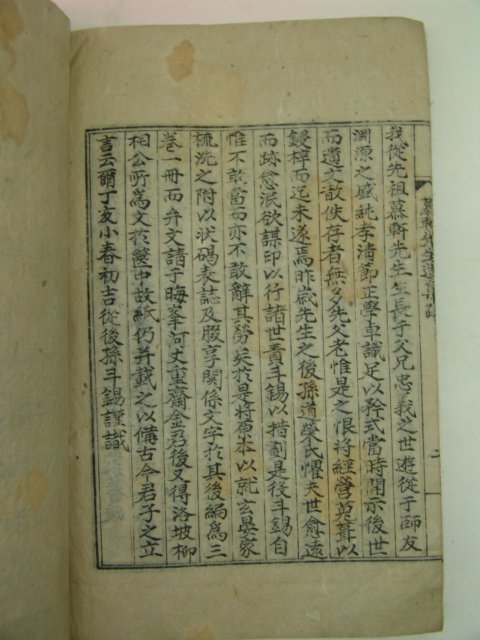 我從先祖慕軒先生生長于父兄忠義之世遊從于師友
淵源之盛純孝清節正學卓識足以矜式當時開示後世
而遺文散佚存者無多先父老惟是之恨將經營蒐葺以
鋟梓而迄未遂焉昨歲先生之後孫道榮氏懼夫世愈遠
而跡愈泯欲謀印以行諸世責斗錫以措劃具後斗錫自
惟不敢當而亦不敢辭其勞矣於是將原本以就玄臯家
梳洗之附以狀碣表誌及腏享關係文字於其後編爲三
卷一冊而弁文請于晦峯河丈重齋金君後又得洛坡柳
相公所爲文於篋中故紙仍并載之以備古今君子之立
言云爾丁亥小春初吉從後孫斗錫謹識
慕軒先生遺集